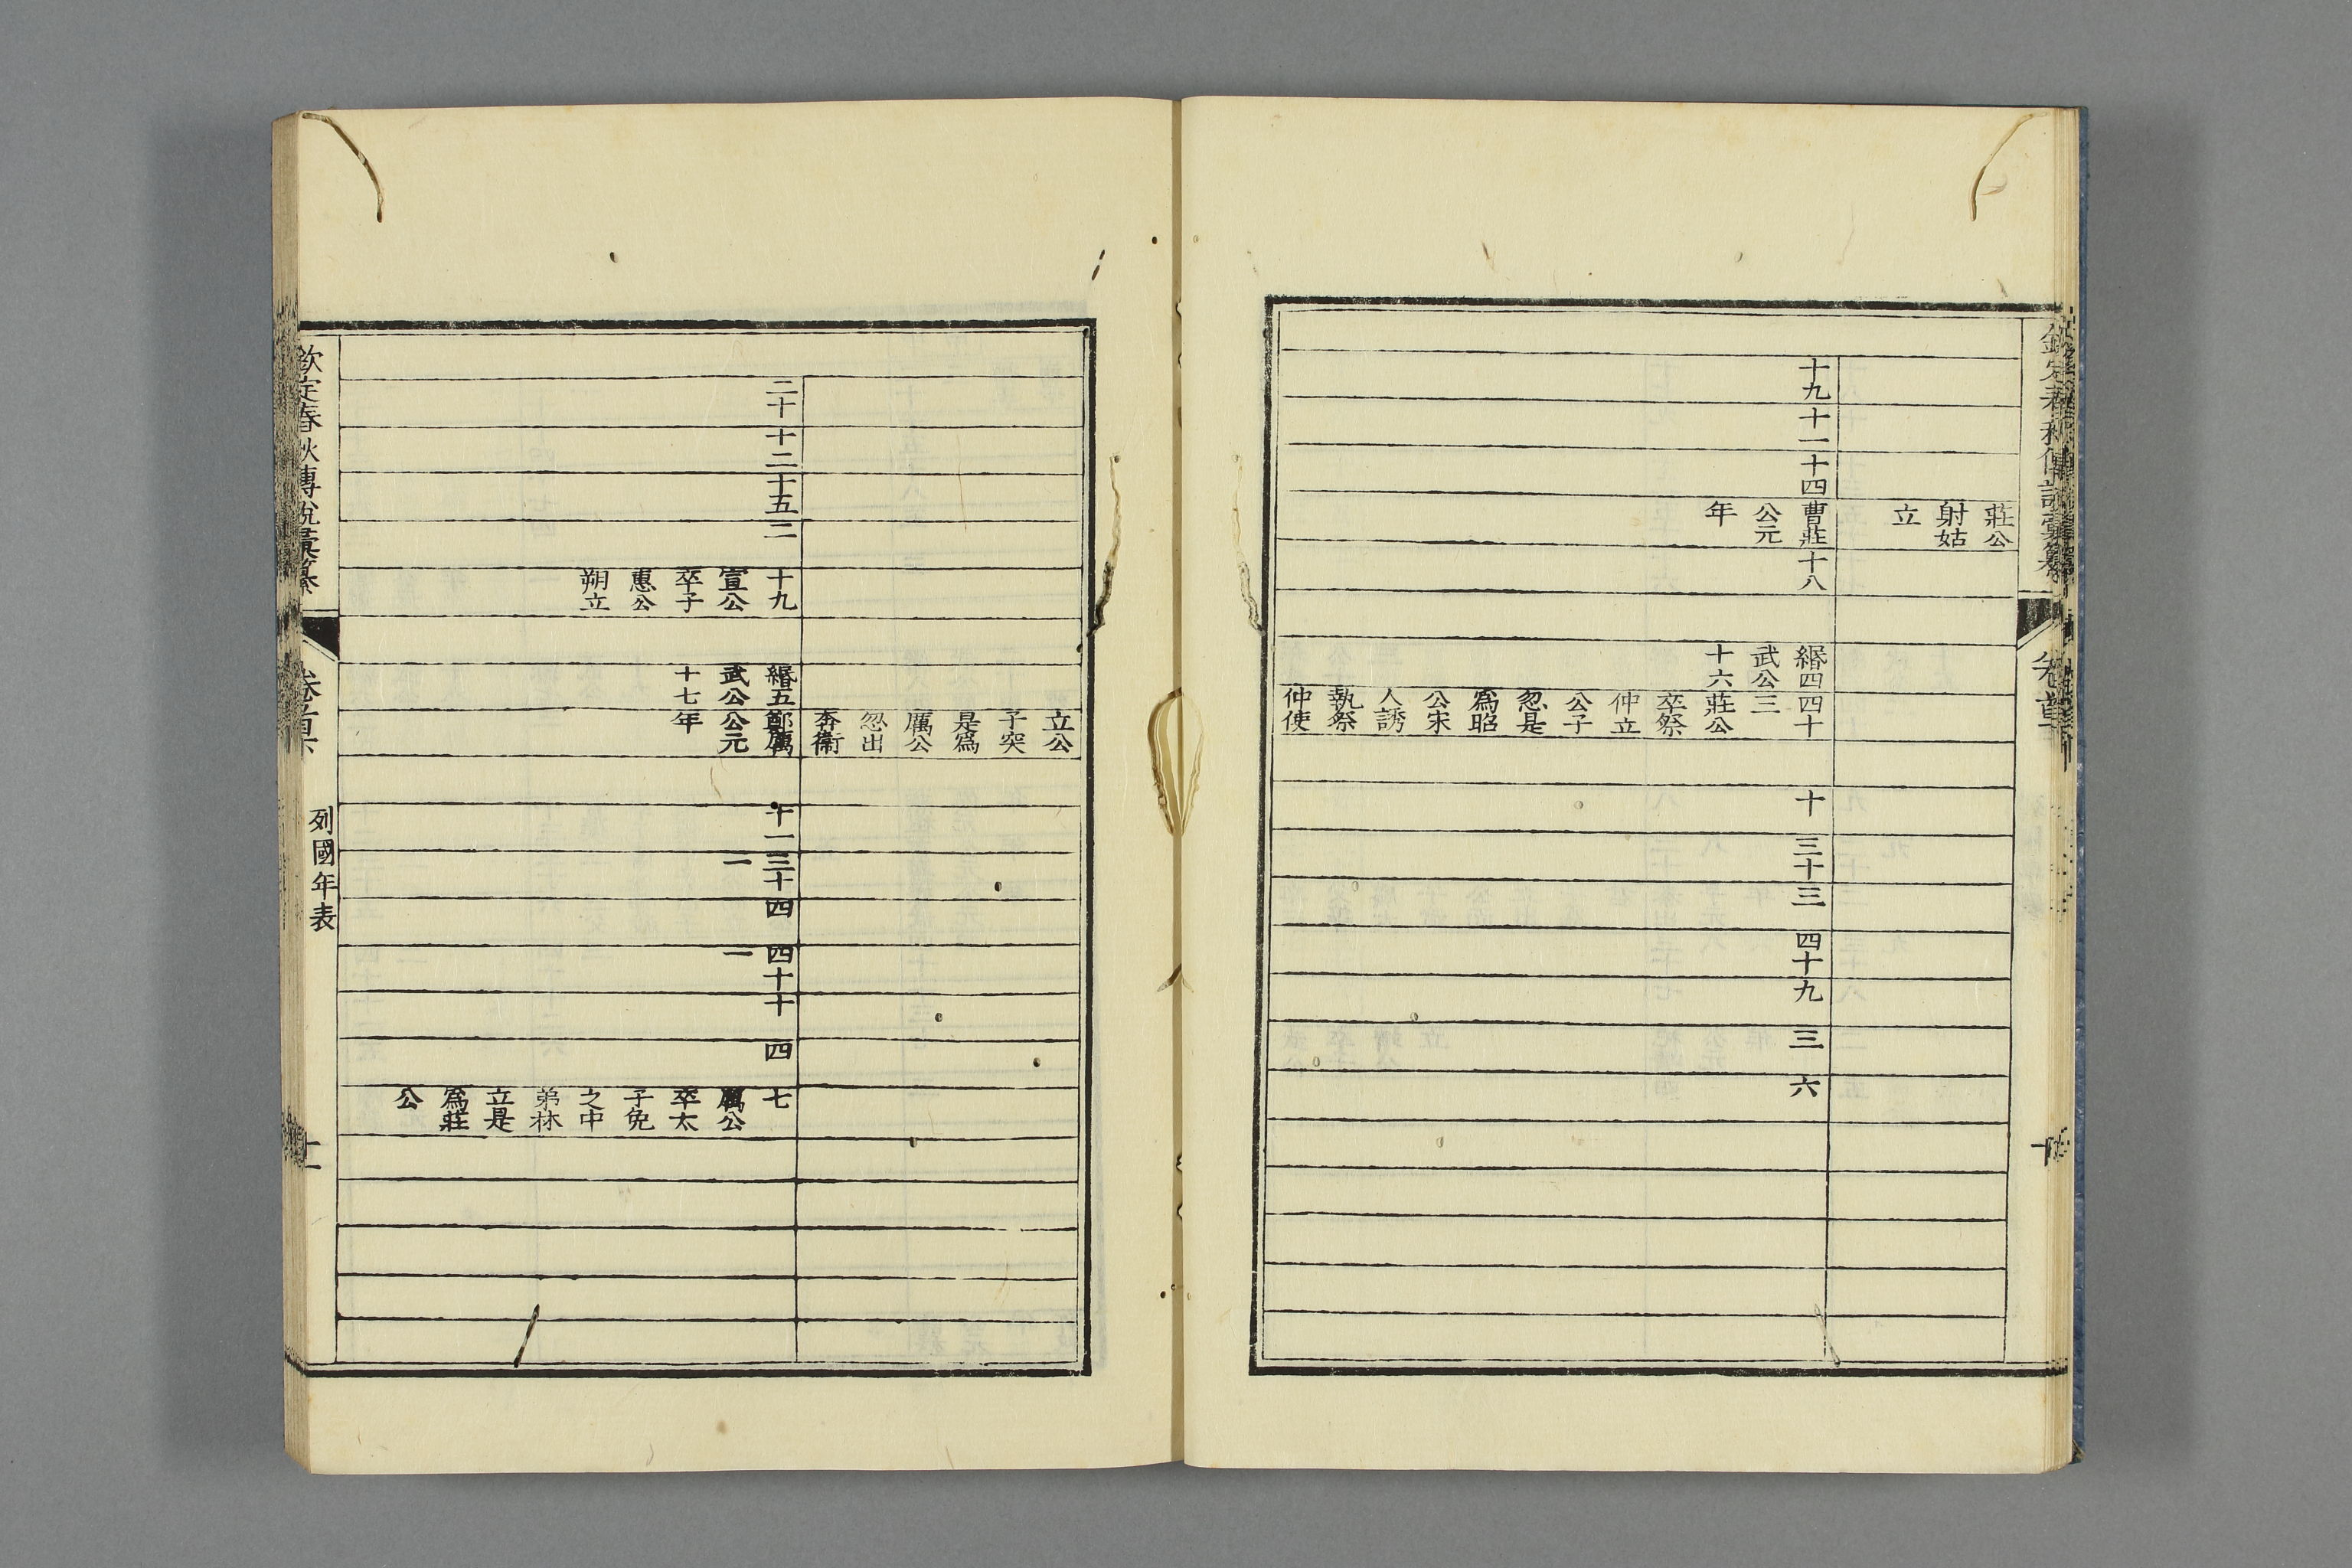 莊公
射姑
立
十九
十一
十四
曹莊
公元
年
十八
緡四
武公
三
十六
四十
三
莊公
卒祭
仲立
公子
忽是
爲昭
公宋
人誘
執祭
仲使
十
三十
三
四十
九
三
六
卷首下
十
立公
子突
是爲
厲公
忽出
奔衞
二十
十二
十五
二
十九
宣公
卒子
惠公
朔立
緡五
武公
十七
鄭厲
公元
年
十一
三十
一
四
四十
一
十
四
七
厲公
卒太
子免
之中
弟林
立是
爲莊
公
欽定春秋傳說彙纂
卷首下
列國年表
十一